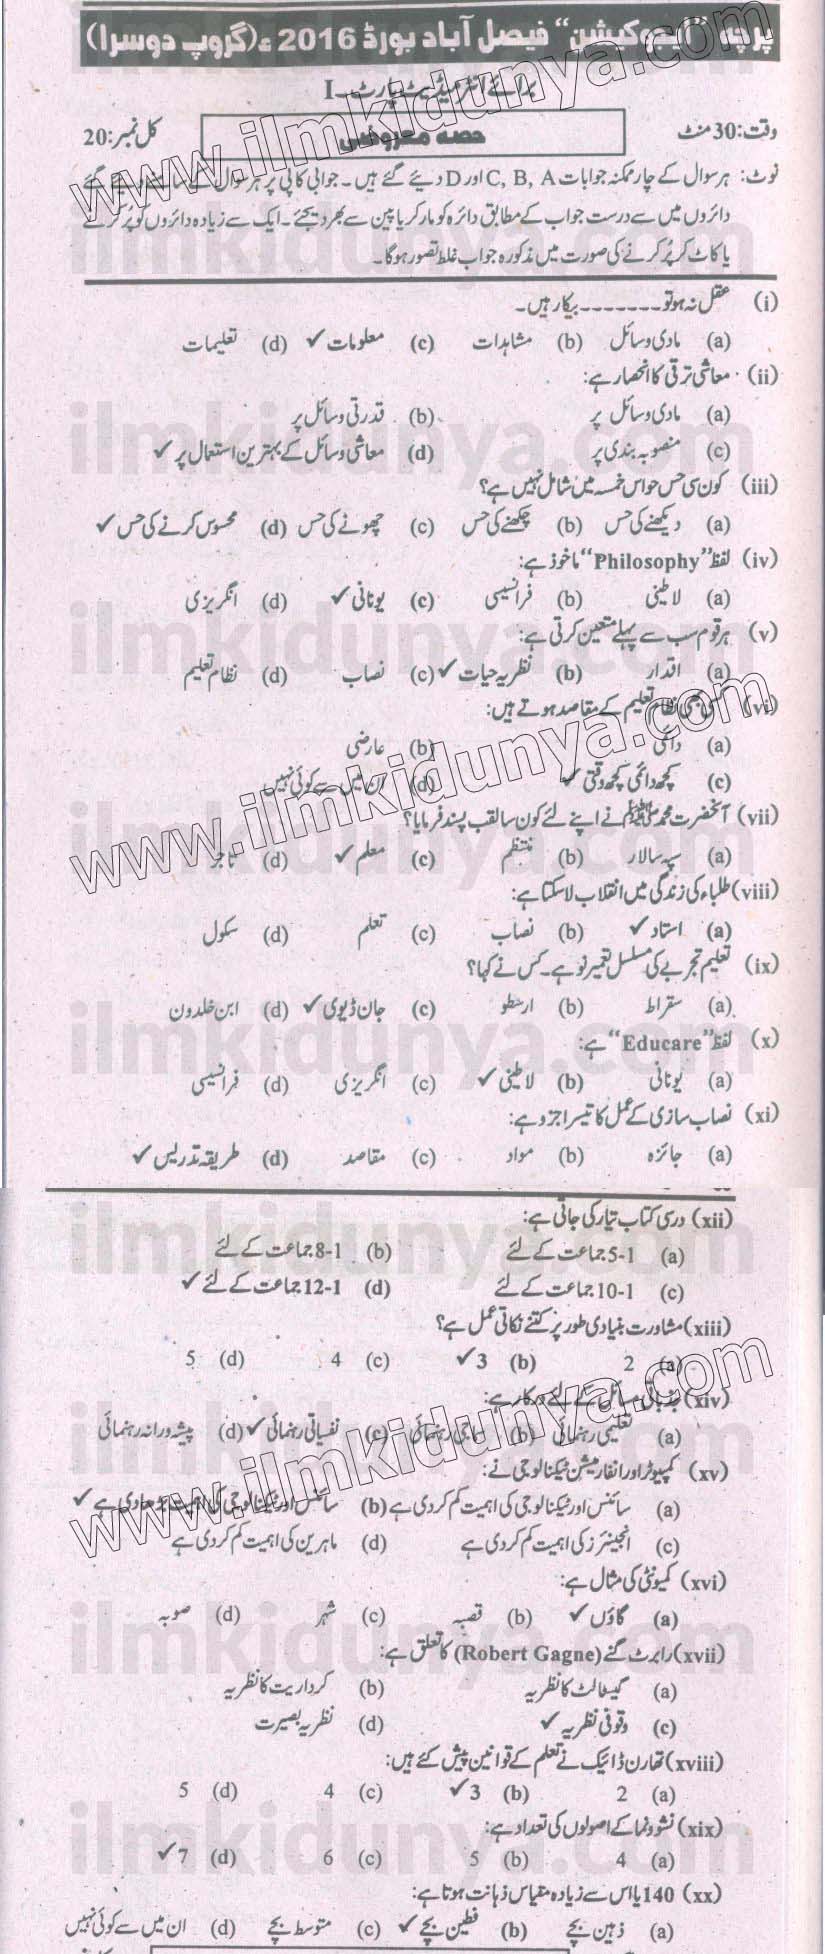 پرچہ "ایجوکیشن" فیصل آباد بورڈ 2016ء (گروپ دوسرا)
برائے انٹرمیڈیٹ پارٹ-I
وقت: 30 منٹ حصہ معروضی کل نمبر: 20
نوٹ: ہر سوال کے چار ممکنہ جوابات C, B, A اور D دیئے گئے ہیں۔ جوابی کاپی پر ہر سوال کے سامنے دیئے گئے
دائروں میں سے درست جواب کے مطابق دائرہ کو مارکر یا پین سے بھر دیجئے۔ ایک سے زیادہ دائروں کو پُر کرنے
یا کاٹ کر پُر کرنے کی صورت میں مذکورہ جواب غلط تصور ہوگا۔
(i) عقل نہ ہو تو ------- بیکار ہیں۔
(a) مادی وسائل (b) مشاہدات (c) معلومات ✓ (d) تعلیمات
(ii) معاشی ترقی کا انحصار ہے:
(a) مادی وسائل پر (b) قدرتی وسائل پر
(c) منصوبہ بندی پر (d) معاشی وسائل کے بہترین استعمال پر ✓
(iii) کون سی حس حواس خمسہ میں شامل نہیں ہے؟
(a) دیکھنے کی حس (b) چکھنے کی حس (c) چھونے کی حس (d) محسوس کرنے کی حس ✓
(iv) لفظ "Philosophy" ماخوذ ہے:
(a) لاطینی (b) فرانسیسی (c) یونانی ✓ (d) انگریزی
(v) ہر قوم سب سے پہلے متعین کرتی ہے:
(a) اقدار (b) نظریہ حیات ✓ (c) نصاب (d) نظام تعلیم
(vi) کسی بھی نظام تعلیم کے مقاصد ہوتے ہیں:
(a) دائمی (b) عارضی
(c) کچھ دائمی کچھ وقتی ✓ (d) ان میں سے کوئی نہیں
(vii) آنحضرت محمد ﷺ نے اپنے لئے کون سا لقب پسند فرمایا؟
(a) سپہ سالار (b) منتظم (c) معلم ✓ (d) تاجر
(viii) طلباء کی زندگی میں انقلاب لا سکتا ہے:
(a) استاد ✓ (b) نصاب (c) تعلم (d) سکول
(ix) تعلیم تجربے کی مسلسل تعمیر نو ہے۔ کس نے کہا؟
(a) سقراط (b) ارسطو (c) جان ڈیوی ✓ (d) ابن خلدون
(x) لفظ "Educare" ہے:
(a) یونانی (b) لاطینی ✓ (c) انگریزی (d) فرانسیسی
(xi) نصاب سازی کے عمل کا تیسرا جزو ہے:
(a) جائزہ (b) مواد (c) مقاصد (d) طریقہ تدریس ✓
(xii) درسی کتاب تیار کی جاتی ہے:
(a) 1-5 جماعت کے لئے (b) 1-8 جماعت کے لئے
(c) 1-10 جماعت کے لئے (d) 1-12 جماعت کے لئے ✓
(xiii) مشاورت بنیادی طور پر کتنے نکاتی عمل ہے؟
(a) 2 (b) 3 ✓ (c) 4 (d) 5
(xiv) جذباتی مسائل کے لئے درکار ہے:
(a) تعلیمی رہنمائی (b) سماجی رہنمائی (c) نفسیاتی رہنمائی ✓ (d) پیشہ ورانہ رہنمائی
(xv) کمپیوٹر اور انفارمیشن ٹیکنالوجی نے:
(a) سائنس اور ٹیکنالوجی کی اہمیت کم کر دی ہے (b) سائنس اور ٹیکنالوجی کی اہمیت بڑھا دی ہے ✓
(c) انجینئرز کی اہمیت کم کر دی ہے (d) ماہرین کی اہمیت کم کر دی ہے
(xvi) کمیونٹی کی مثال ہے:
(a) گاؤں ✓ (b) قصبہ (c) شہر (d) صوبہ
(xvii) رابرٹ گنے (Robert Gagne) کا تعلق ہے:
(a) گیسٹالٹ کا نظریہ (b) کرداریت کا نظریہ
(c) وقوفی نظریہ ✓ (d) نظریہ بصیرت
(xviii) تھارن ڈائیک نے تعلم کے قوانین پیش کئے ہیں:
(a) 2 (b) 3 ✓ (c) 4 (d) 5
(xix) نشوونما کے اصولوں کی تعداد ہے:
(a) 4 (b) 5 (c) 6 (d) 7 ✓
(xx) 140 یا اس سے زیادہ مقیاس ذہانت ہوتا ہے:
(a) ذہین بچے (b) فطین بچے ✓ (c) متوسط بچے (d) ان میں سے کوئی نہیں
www.ilmkidunya.com
ilmkidunya.com